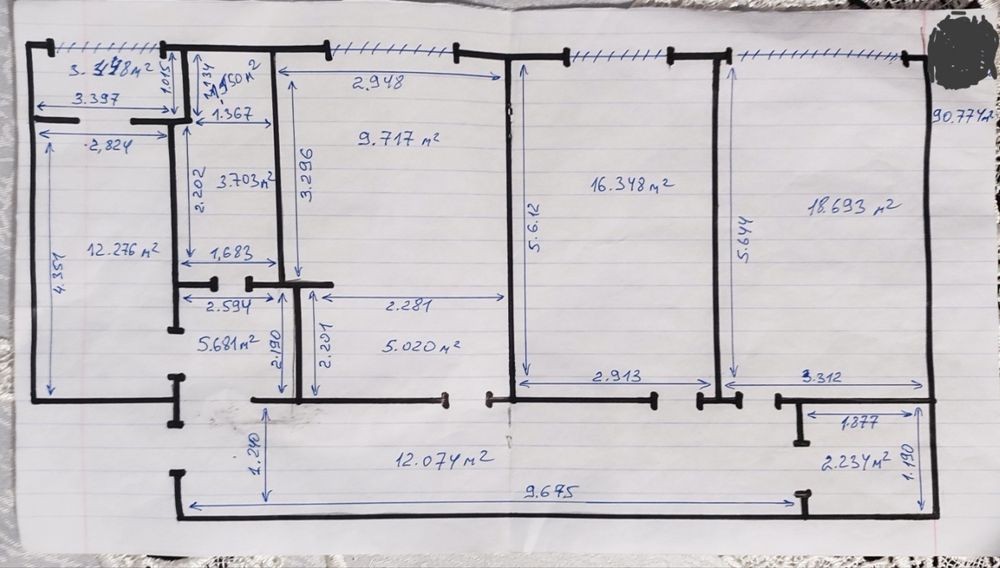 3.448 м²
1.015
3.397
1.134
1.550 м²
1.367
2.948
9.717 м²
3.296
90.774 м²
2,824
4.351
12.276 м²
2.202
3.703 м²
1,683
5.612
16.348 м²
5.644
18.693 м²
2.594
5.681 м²
2.190
2.201
2.281
5.020 м²
2.913
3.312
1.877
2.234 м²
1.190
1.240
12.074 м²
9.675